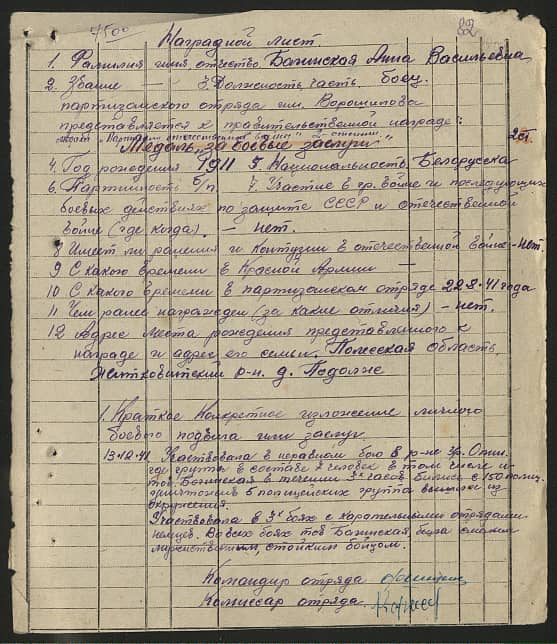 7500
22
Наградной лист.
1. Фамилия имя отчество Бажинская Анна Васильевна
2. Звание 3. Должность, часть. боец.
партизанского отряда им. Ворошилова
представляется к правительственной награде:
"Партизан отечественной войны" 2 степени
"Медаль за боевые заслуги" 2ст.
4. Год рождения 1911 5. Национальность Белорусска
6. Партийность б/п. 7. Участие в гр. войне и последующих
боевых действиях по защите СССР и отечественной
войне (где когда). - нет.
8 Имеет ли ранения и контузии в отечественной войне - нет.
9 С какого времени в Красной Армии —
10 С какого времени в партизанском отряде 22.8.41 года
11 Чем ранее награжден (за какие отличия) - нет.
12 Адрес места рождения представленного к
награде и адрес его семьи. Полесская область,
Житковитский р-н. д. Подолже
1. Краткое конкретное изложение личного
боевого подвига или заслуг
13.12.41. Участвовала в неравном бою в р-не
где группа в составе 7 человек в том числе и
тов. Бажинская в течении 3х часов бились с 150 полиц.
уничтожив 5 полицейских группа вышла из
окружения.
Участвовала в 3х боях с карательными отрядами
немцев. Во всех боях тов Бажинская была смелым
мужественным, стойким бойцом.
Командир отряда
Комиссар отряда